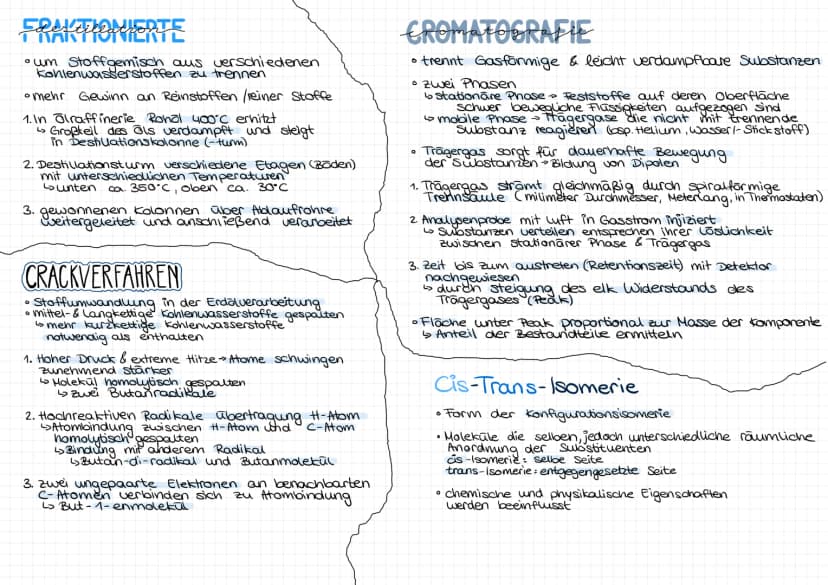 FRAKTIONIERTE
destillation
• um Stoffgemisch aus verschiedenen
Kohlenwasserstoffen zu trennen
• mehr Gewinn an Reinstoffen / reiner Stoffe
1. In Ölraffinerie Rohöl 400°C erhitzt
↳ Großteil des Öls verdampft und steigt
in Destillationskolonne (-turm)
2. Destillationsturm verschiedene Etagen (Böden)
mit unterschiedlichen Temperaturen
↳ unten ca. 350°C, oben ca. 30°C
3. gewonnenen Kolonnen über Ablaufrohre
weitergeleitet und anschließend verarbeitet
CRACKVERFAHREN
• Stoffumwandlung in der Erdölverarbeitung
• mittel- & langkettige Kohlenwasserstoffe gespalten
↳ mehr kurzkettige Kohlenwasserstoffe
notwendig als enthalten
1. Hoher Druck & extreme Hitze → Atome schwingen
zunehmend stärker
↳ Molekül homolytisch gespalten
↳ zwei Butanradikale
2. Hochreaktiven Radikale übertragung H-Atom
↳ Atombindung zwischen H-Atom und C-Atom
homolytisch gespalten
↳ Bindung mit anderem Radikal
↳ Butan-di-radikal und Butanmolekül
3. zwei ungepaarte Elektronen an benachbarten
C-Atomen verbinden sich zu Atombindung
↳ But-1-enmolekül
CROMATOGRAFIE
cromatografie
• trennt Gasförmige & leicht verdampfbare Substanzen
• zwei Phasen
↳ stationäre Phase → Feststoffe auf deren Oberfläche
schwer bewegliche Flüssigkeiten aufgezogen sind
↳ mobile Phase → Trägergase die nicht mit trennende
Substanz reagieren (bsp. Helium, Wasser/-Stickstoff)
• Trägergas sorgt für dauerhafte Bewegung
der Substanzen → Bildung von Dipolen
1. Trägergas strömt gleichmäßig durch spiralförmige
Trennsäule (milimeter Durchmesser, Meterlang, in Thermostaten)
2 Analysenprobe mit Luft in Gasstrom injiziert
↳ Substanzen verteilen entsprechen ihrer Löslichkeit
zwischen stationärer Phase & Trägergas
3. Zeit bis zum austreten (Retentionszeit) mit Detektor
nachgewiesen
↳ durch steigung des elk Widerstands des
Trägergases (Peak)
• Fläche unter Peak proportional zur Masse der Komponente
↳ Anteil der Bestandteile ermitteln
Cis-Trans-Isomerie
• Form der Konfigurationsisomerie
• Moleküle die selben, jedoch unterschiedliche räumliche
Anordnung der Substituenten
cis-Isomerie: selbe Seite
trans-Isomerie: entgegengesetzte Seite
• chemische und physikalische Eigenschaften
werden beeinflusst